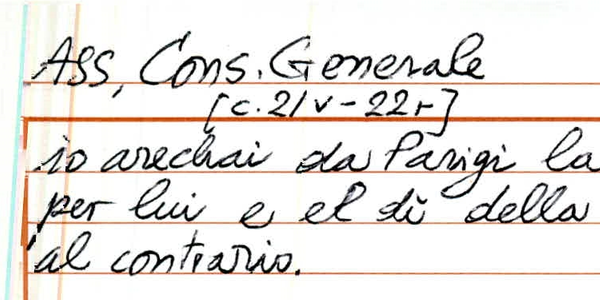 Ass, Cons. Generale
[c. 21v - 22r]
io arechai da Parigi la
per lui e el dì della
al contrario.